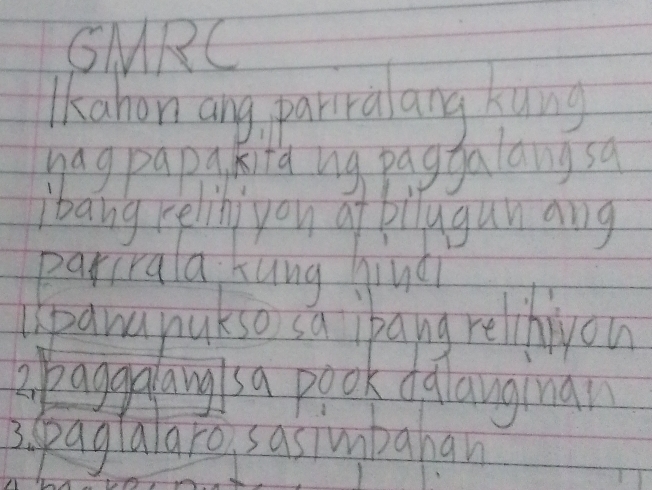 GMRC
Ikahon ang pariralang kung
nagpapakita ng paggalang sa
ibang relihiyon at bilugan ang
parirala kung hindi
1. panunukso sa ibang relihiyon
2. paggalang sa pook dalanginan
3. paglalaro sa simbahan